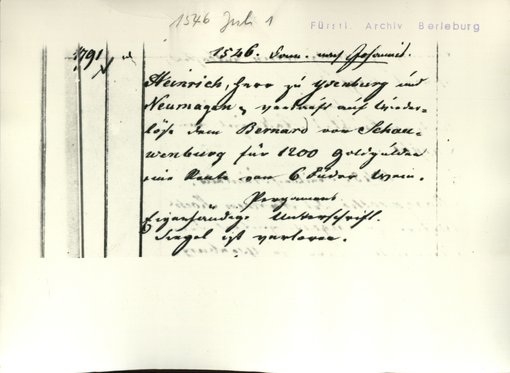 1546 Juli 1
Fürstl. Archiv Berleburg
791
1546. Donn. nach Johannis.
Heinrich, Herr zu Ysenburg und
Neumagen, verkauft auf Wieder-
löse dem Bernard von Schau-
wenburg für 1200 Goldgülden
eine Rente von 6 Fuder Wein.
Pergament
Eigenhändige Unterschrift.
Siegel ist verloren.